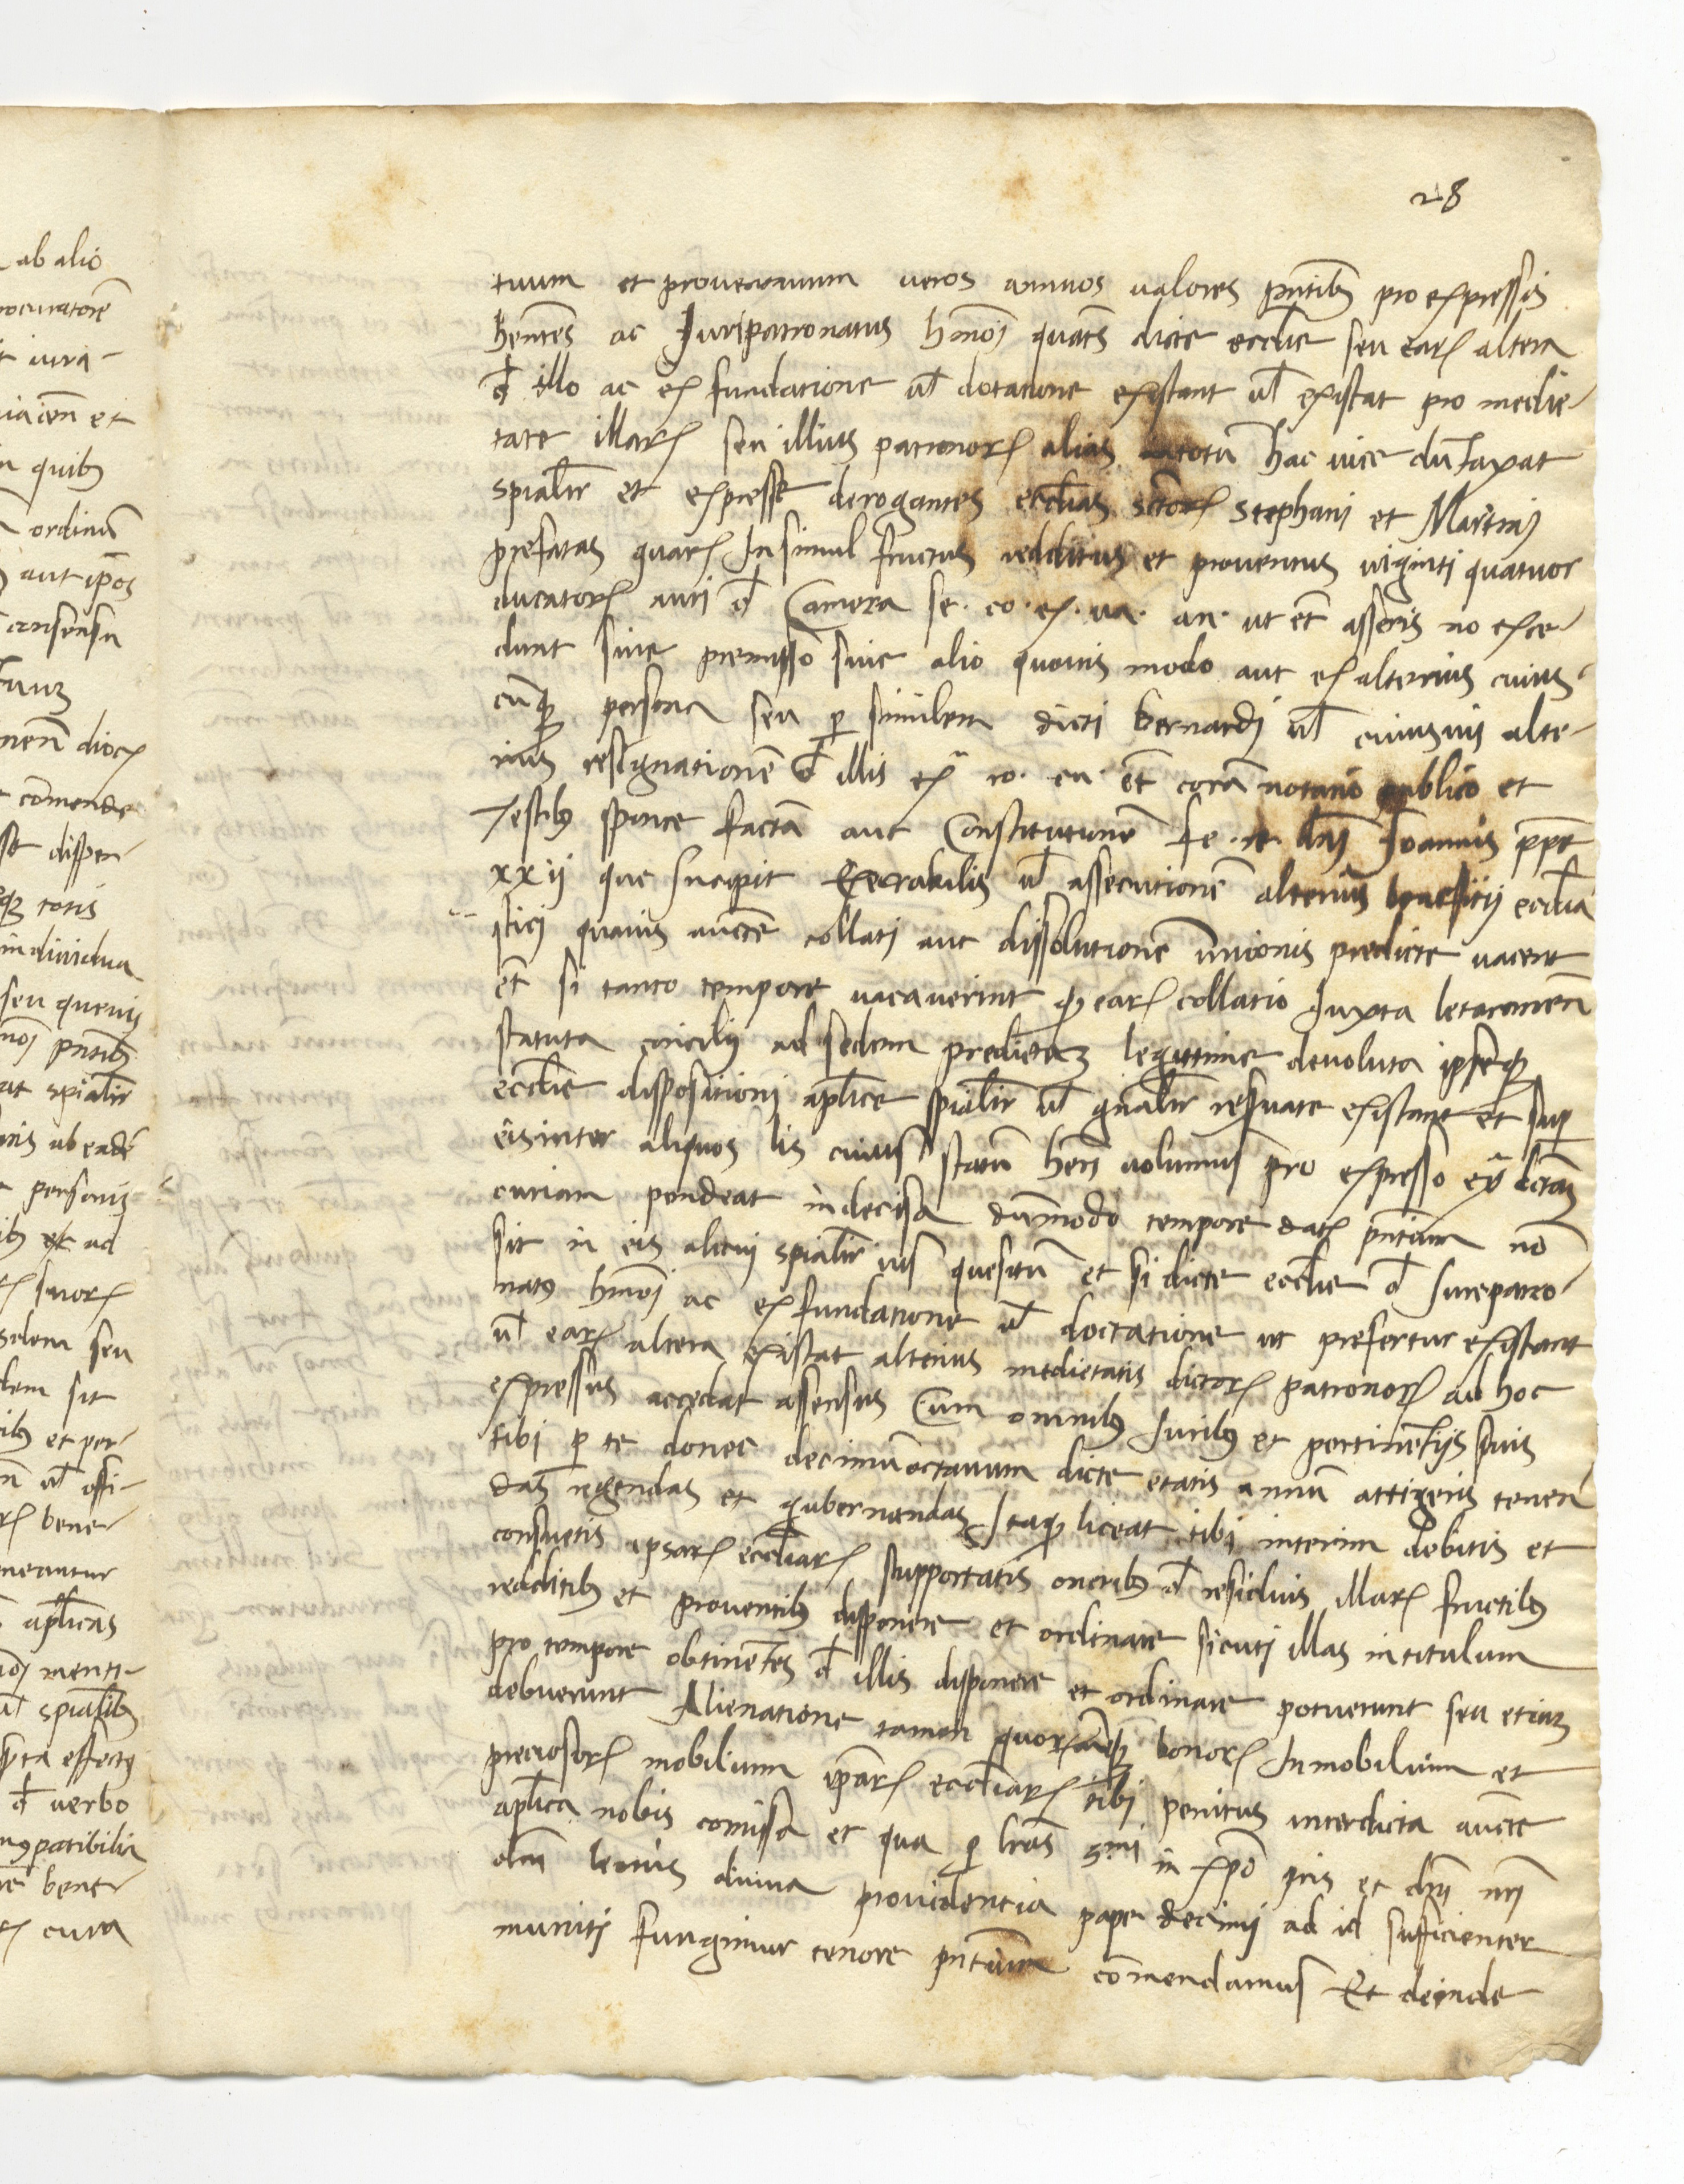 28
tuum et proventuum veros annuos valores pntib9 pro expressis
hentes ac Juripatronatus hmoj quate dicte ecclie seu earꝝ altera
d illo ac ex fundatione ul dotatione existant ul existat pro medie-
tate illarꝝ seu illius patronorꝝ alias hac vice duntaxat
spialir et expresse derogantes ecclias sctorꝝ Stephani et Martini
prefatas quarꝝ Insimul fructus redditus et proventus viginti quatuor
ducatorꝝ auri d Camera se. co. ex. va. an. ut et asseris no exce-
dunt sive premisso sive alio quovis modo aut ex alterius cuius-
cuqꝫ persona seu p similem dicti Bernardi ul cuiusvis alte-
rius resignatione d illis ex ro. cu. et cora notario publico et
Testib9 sponte facta aut Constitutione fe. re. dni Joannis ppe
xxij que Incipit Execrabilis ul assecutione alterius beneficij ecclia
stici quavis aucte collati aut dissolutione unionis predicte vacent
et si tanto tempore vacaverint qꝫ earꝝ collatio Juxta lateranen
statuta concilij ad sedem predictam legittime devoluta ipseqꝫ
ecclie dispositioni aplice spialir ul gnalir resvate existant et sup
eis inter aliquos lis cuius statu heri volumus pro expresso ex dictam
curiam pendeat indecisa dummodo tempore datꝝ pntium no
sit in eis alicui spialir ius quesitu et si dicte ecclie d Jurepatro-
nat9 hmoj ac ex fundatione ul doctatione ut prefertur existant
ul earꝝ altera existat alterius medietatis dictorꝝ patronorꝝ ad hoc
expressus accedat assensus Cum omnib9 Jurib9 et pertinetijs suis
tibi p te donec decimuoctavum dicte etatis annu attigeris tenen
das regendas et gubernandas Itaqꝫ liceat tibi interim debitis et
consuetis ipsarꝝ eccliarꝝ supportatis onerib9 d residuis illarꝝ fructib9
redditib9 et proventib9 disponere et ordinare sicuti illas in titulum
pro tempore obtinetes d illis disponere et ordinare potuerunt seu etiam
debuerunt Alienatione tamen quorumcqꝫ bonorꝝ Inmobilium et
preciosorꝝ mobilium ipsarꝝ eccliarꝝ tibi penitus interdicta aucte
aplica nobis comissa et qua p lras smi in xpo pris et dni nri
dni leonis divina providentia pape decimj ad id sufficienter
muniti fungimur tenore pntium comendamus Et deinde
ab alio
rocuratore
t iura-
iacen et
n quib9
ordinu
aut ipos
consensu
nen dioc
comende
dispen
totis
individua
seu quevis
noj pntib9
at spialir
ab eade
personis
et ad
suorꝝ
seu
dem sit
ib9 et per-
ul offi-
bene-
neantur
aplicas
menti-
ul spialib9
effect9
d verbo
patibilia
bene-
cura